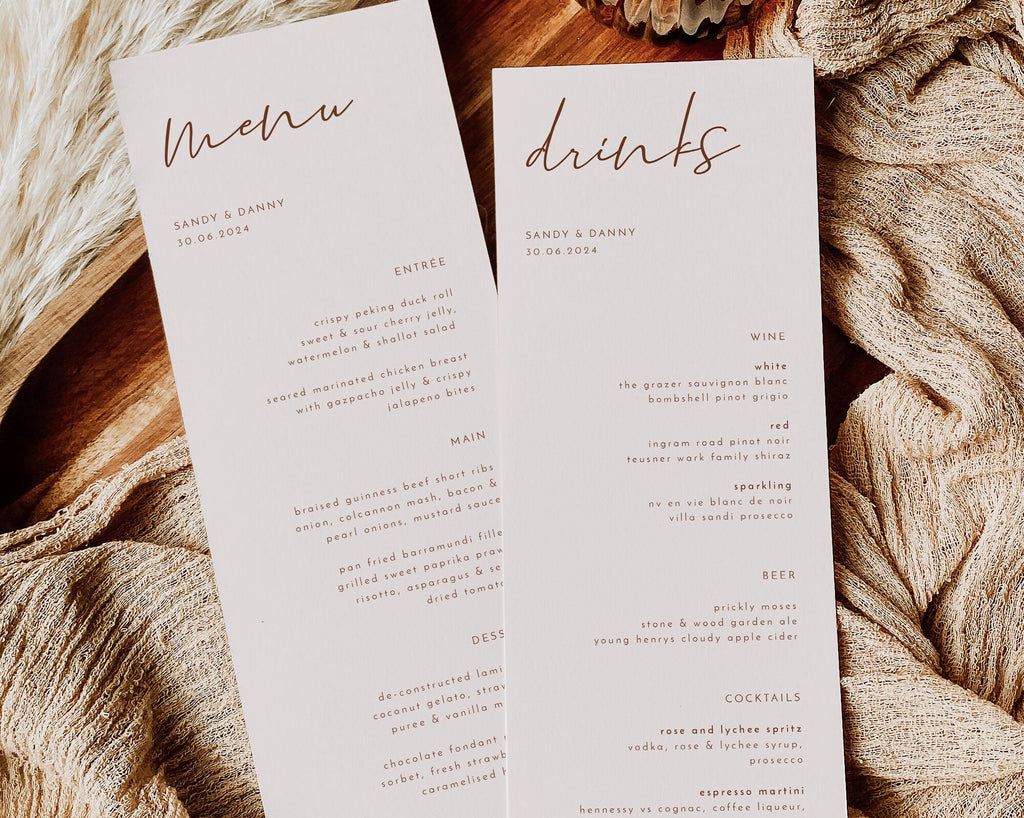 menu
SANDY & DANNY
30.06.2024
ENTRÉE
crispy peking duck roll
sweet & sour cherry jelly,
watermelon & shallot salad
seared marinated chicken breast
with gazpacho jelly & crispy
jalapeno bites
MAIN
braised guinness beef short ribs
onion, colcannon mash, bacon &
pearl onions, mustard sauce
pan fried barramundi
grilled sweet paprika
risotto, asparagus &
dried
de-constructed
coconut gelato,
puree & vanilla
chocolate fondant
sorbet, fresh
caramelised
drinks
SANDY & DANNY
30.06.2024
WINE
white
the grazer sauvignon blanc
bombshell pinot grigio
red
ingram road pinot noir
teusner wark family shiraz
sparkling
nv en vie blanc de noir
villa sandi prosecco
BEER
prickly moses
stone & wood garden ale
young henrys cloudy apple cider
COCKTAILS
rose and lychee spritz
vodka, rose & lychee syrup,
prosecco
espresso martini
hennessy vs cognac, coffee liqueur,